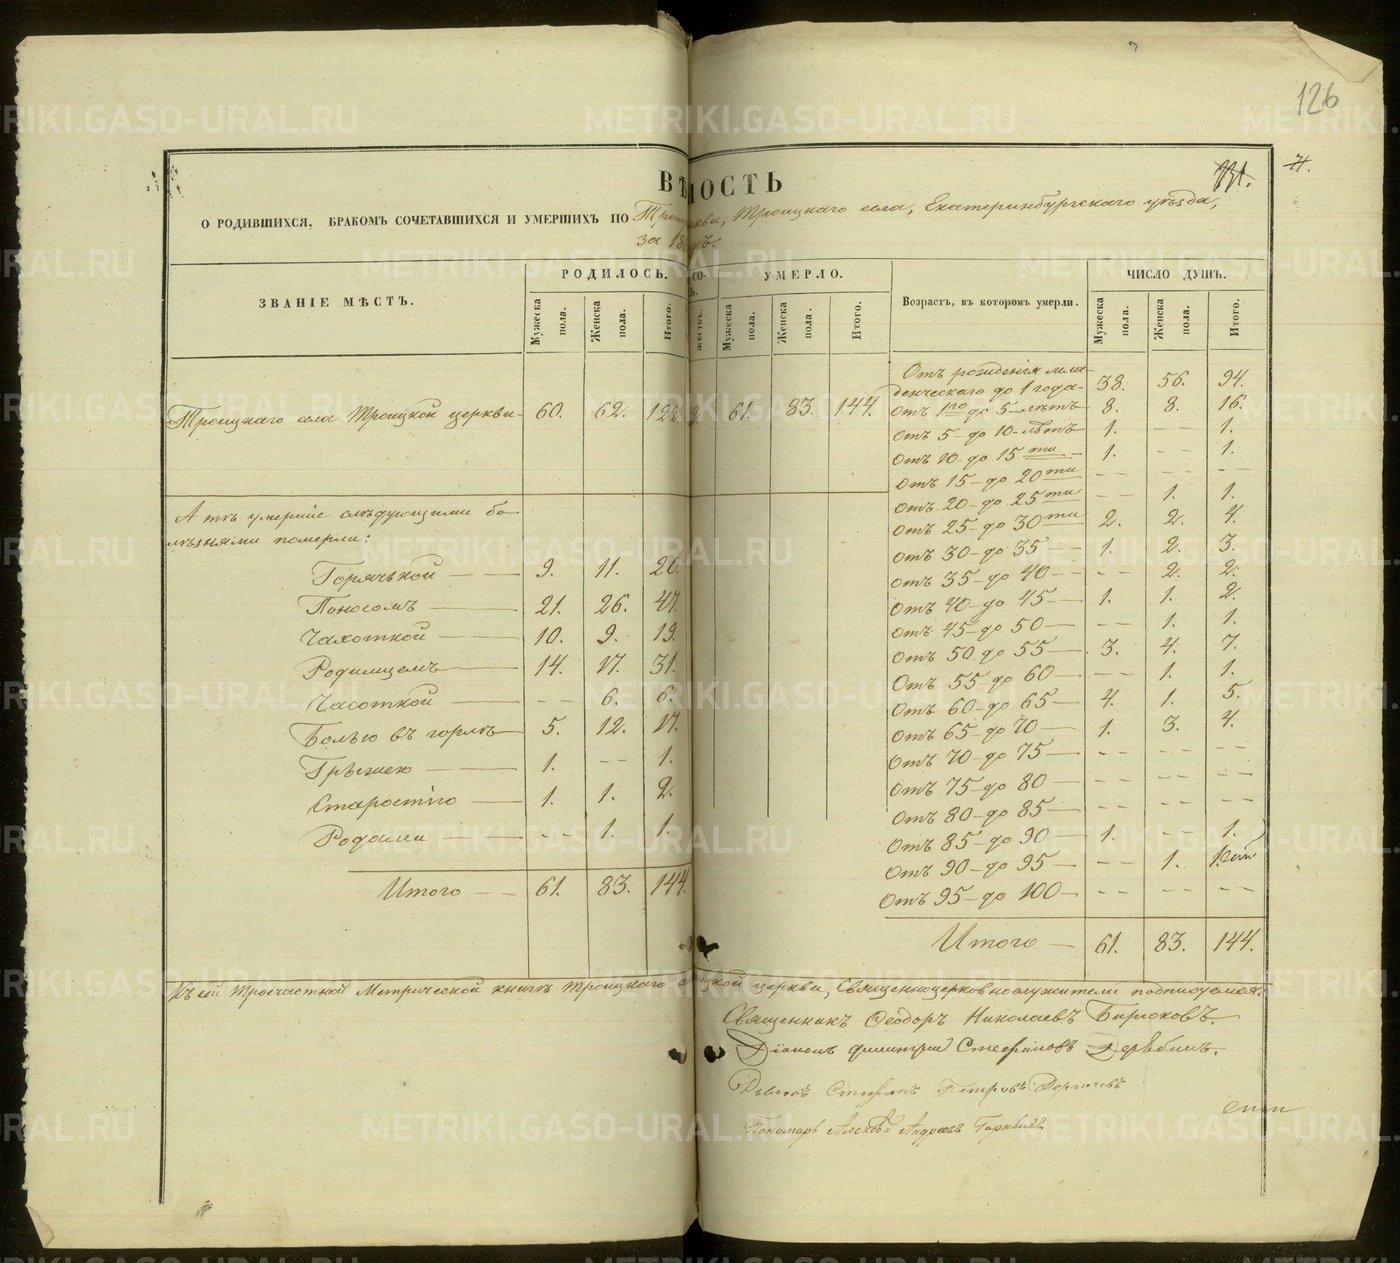 126
71.
ВѢ ОСТЬ
О РОДИВШИХСЯ, БРАКОМЪ СОЧЕТАВШИХСЯ И УМЕРШИХЪ ПО Трои кви, Троицкаго села, Екатеринбургскаго уѣзда,
за 18 дъ.
ЗВАНІЕ МѢСТЪ. РОДИЛОСЬ. СО- УМЕРЛО. Возрастъ, въ которомъ умерли. ЧИСЛО ДУШЪ.
Мужеска пола. Женска пола. Итого. жествъ. Мужеска пола. Женска пола. Итого. Мужеска пола. Женска пола. Итого.
Троицкаго села Троицкой церкви 60. 62. 122. 61. 83. 144.
Отъ рожденія мла-
денческаго до 1 года 38. 56. 94.
Отъ 1го до 5 лѣтъ 8. 8. 16.
Отъ 5 до 10 лѣтъ 1. - - 1.
Отъ 10 до 15ти 1. - - 1.
Отъ 15 до 20ти - - - - - -
Отъ 20 до 25ти - - 1. 1.
Отъ 25 до 30ти 2. 2. 4.
Отъ 30 до 35 1. 2. 3.
Отъ 35 до 40 - - 2. 2.
Отъ 40 до 45 1. 1. 2.
Отъ 45 до 50 - - 1. 1.
Отъ 50 до 55 3. 4. 7.
Отъ 55 до 60 - - 1. 1.
Отъ 60 до 65 4. 1. 5.
Отъ 65 до 70 1. 3. 4.
Отъ 70 до 75 - - - - - -
Отъ 75 до 80 - - - - - -
Отъ 80 до 85 - - - - - -
Отъ 85 до 90 1. - - 1.
Отъ 90 до 95 - - 1. 1.
Отъ 95 до 100 - - - - - -
Итого 61. 83. 144.
А тѣ умершіе слѣдующими бо-
лѣзнями померли:
Горячькой 9. 11. 20.
Поносомъ 21. 26. 47.
Чахоткой 10. 9. 19.
Родимцемъ 14. 17. 31.
Часоткой - - 6. 6.
Болью въ горлѣ 5. 12. 17.
Грыжею 1. - - 1.
Старостію 1. 1. 2.
Родами - - 1. 1.
Итого 61. 83. 144.
Къ сей Троечастной Метрической книгѣ Троицкаго с ицкой церкви, Священноцерковнослужители подписуемся:
Священникъ Ѳеодоръ Николаевъ Бирюковъ.
Діаконъ Димитрій Стефановъ Дерябинъ.
Дьячокъ Стефанъ Петровъ
Пономарь Алексѣй Андреевъ
METRIKI.GASO-URAL.RU